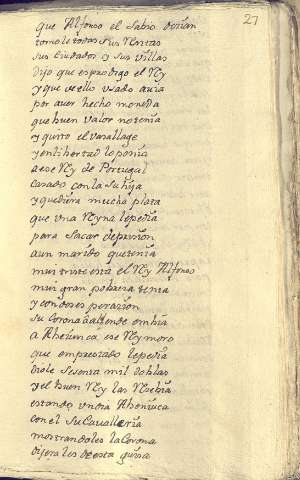 27
que Alfonso el Sabio decian
tomole todas sus Rentas
sus Ciudades y sus Villas
Dijo que es prodigo el Rey
y que de ello usado avia
por aver hecho moneda
que buen valor no tenia
y quito el vasallage
y en libertad lo ponia
a ese Rey de Portugal
casado con la Su hija
y que diera mucha plata
que una Reyna le pedia
para Sacar de prision
a un marido que tenia
mui triste esta el Rey Alfonso
mui gran pobreza tenia
y con dones
Su Corona allende embia
a Abeniuca ese Rey moro
que emprestado le pedia
diole Sesenta mil doblas
y el buen Rey las Recibia
estando un dia Abeniuca
con el Su Cavalleria
mostrandoles la Corona
dijera les de esta guisa